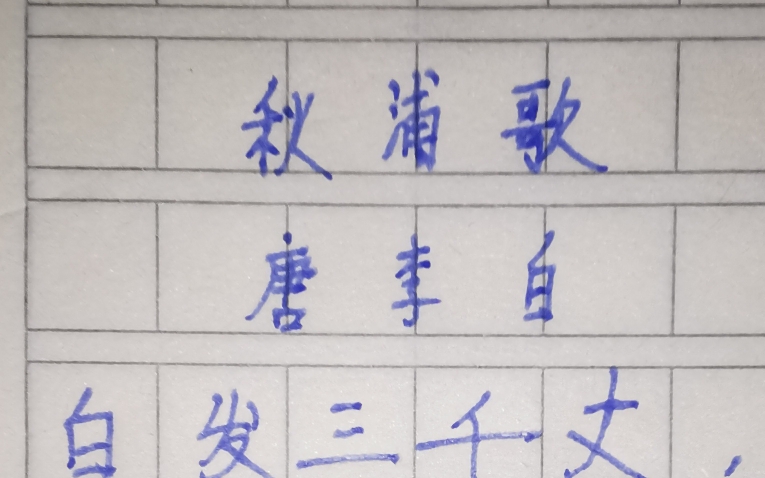 秋浦歌
唐李白
白发三千丈，